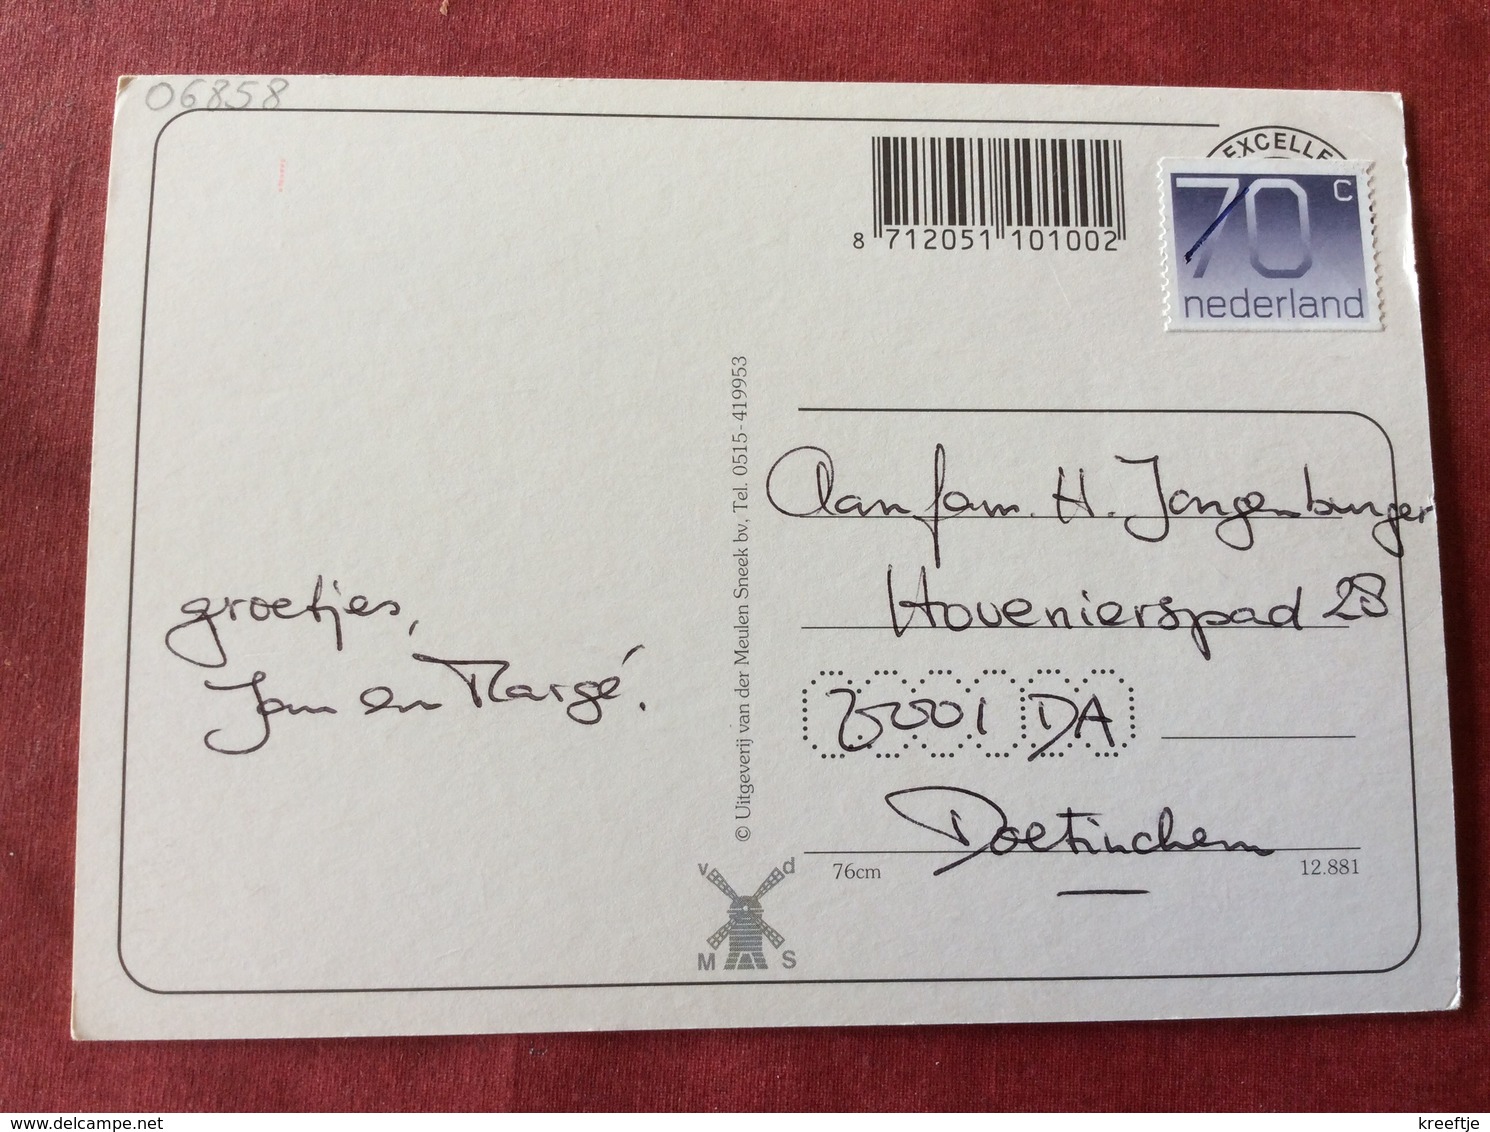 06858
EXCELLE
70 c
nederland
8 712051 101002
© Uitgeverij van der Meulen Sneek bv, Tel. 0515-419953
groetjes,
Jan en Margé.
Aan fam. H. Jongenburger
Hovenierspad 28
7001 DA
Doetinchem
76cm
12.881
v d
M S
delcampe.net
kreeftje